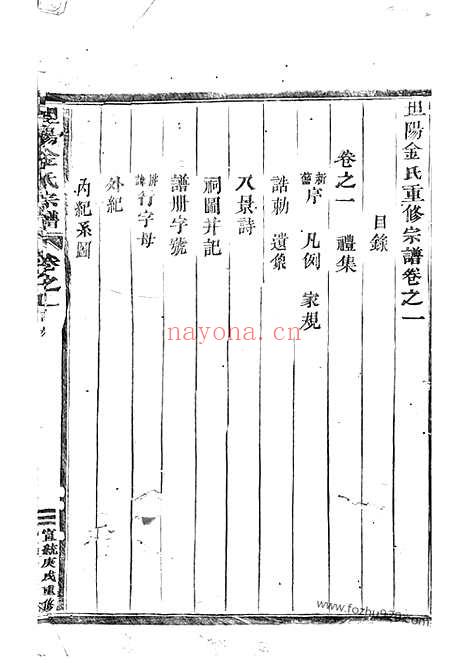 坥陽金氏重修宗譜卷之一
目錄
卷之一　禮集
新舊序　凡例　家規
誥勅　遺像
八景詩
祠圖幷記
譜册字號
行字母
外紀
內紀系圖
陽金氏宗譜
卷之一
宣統庚戌重修
nayona.cn
www.fozhu920.com